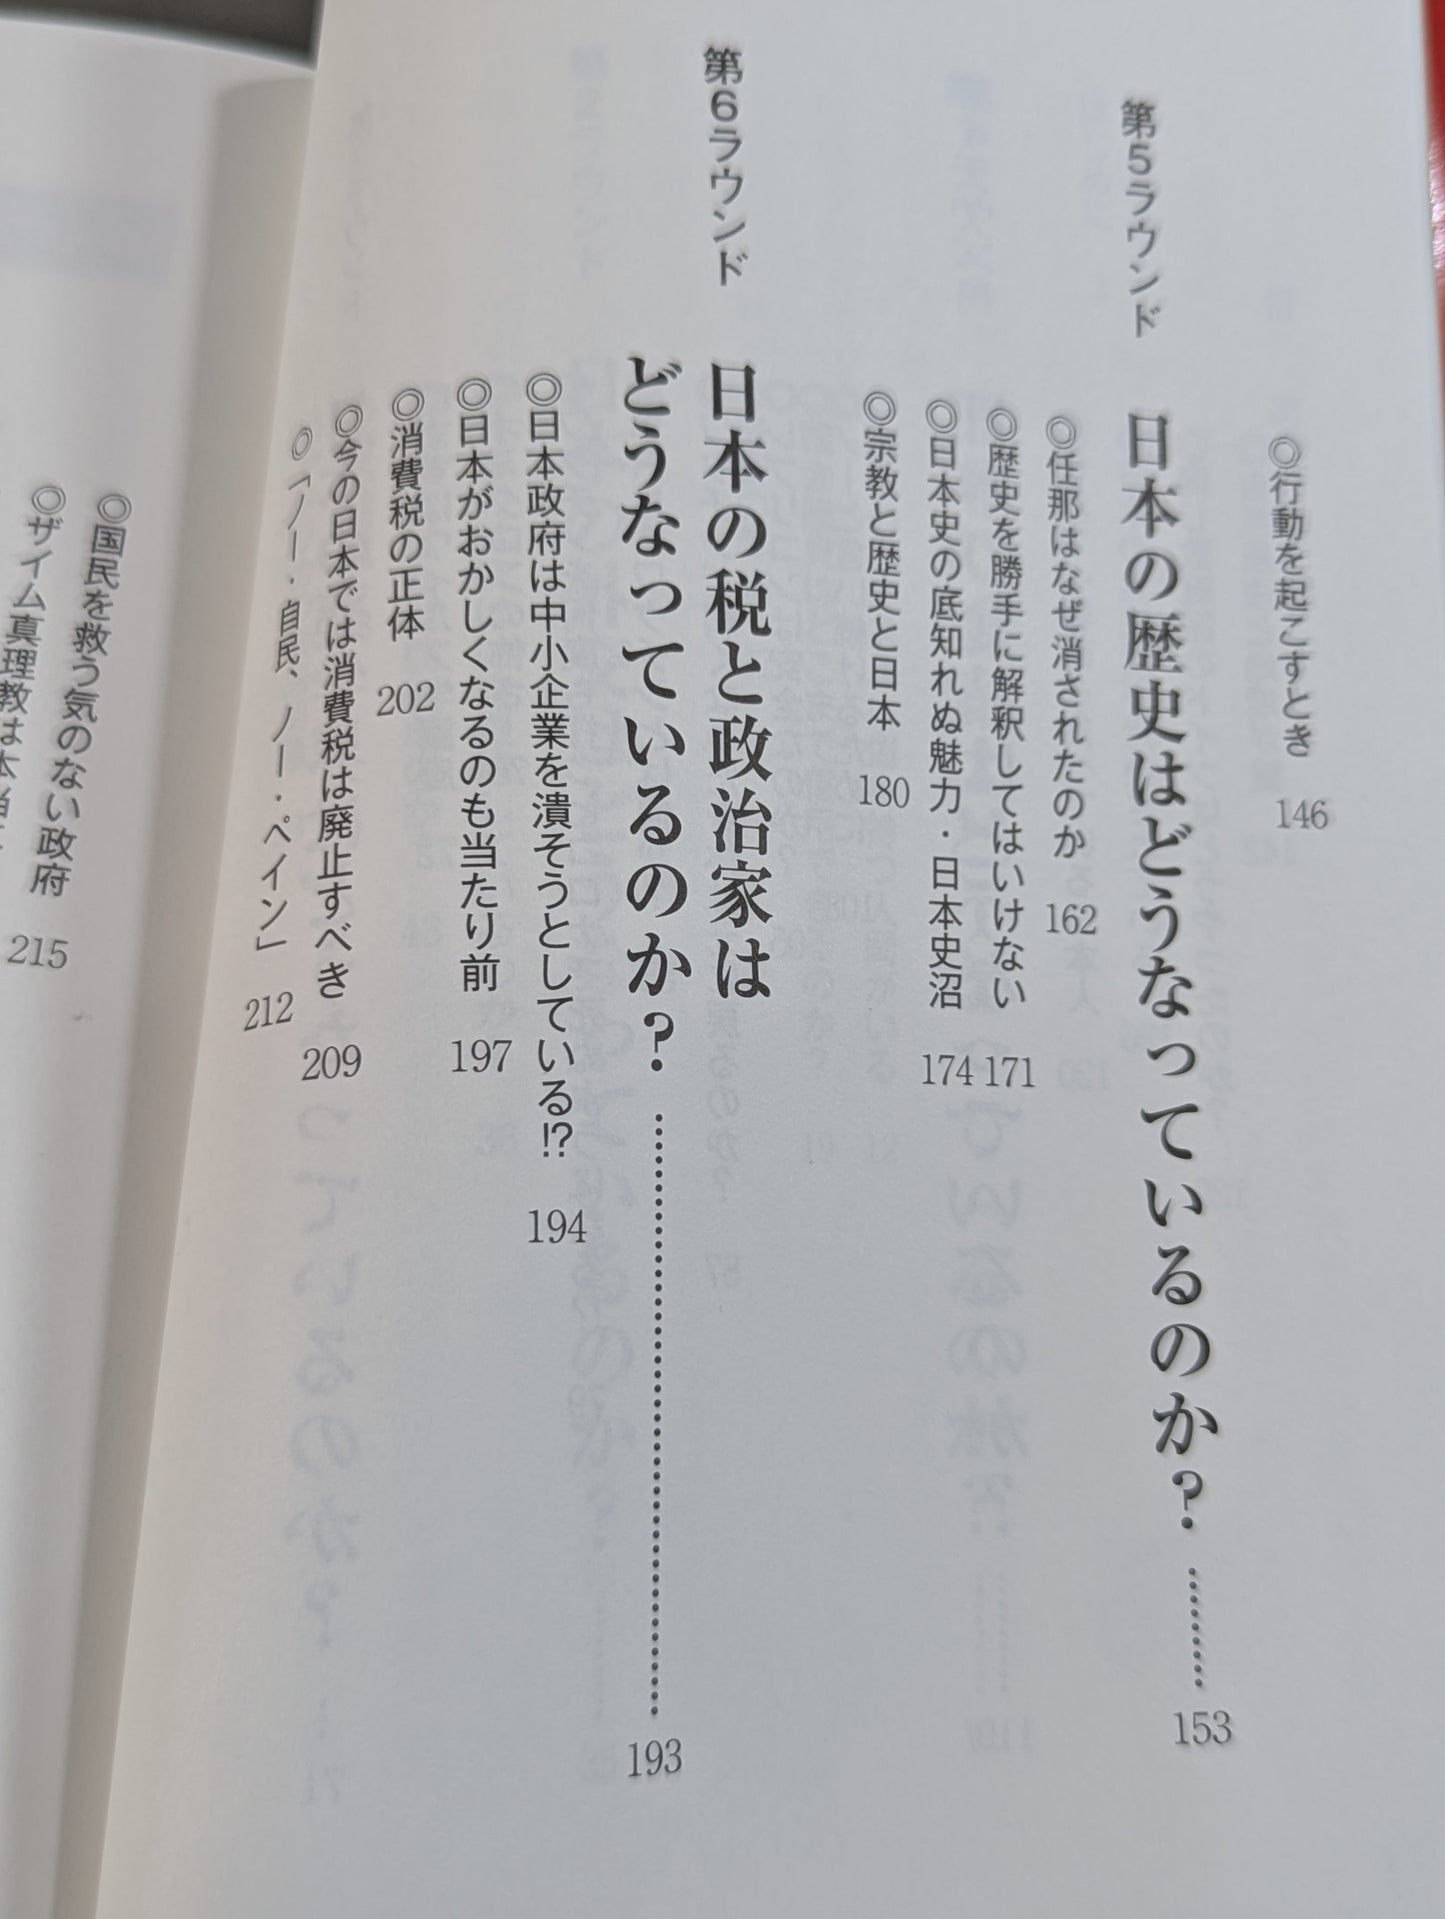 ◎行動を起こすとき 146
第5ラウンド 日本の歴史はどうなっているのか？ ……… 153
◎任那はなぜ消されたのか 162
◎歴史を勝手に解釈してはいけない 171
◎日本史の底知れぬ魅力・日本史沼 174
◎宗教と歴史と日本 180
第6ラウンド 日本の税と政治家は
どうなっているのか？ ……………………… 193
◎日本政府は中小企業を潰そうとしている!? 194
◎日本がおかしくなるのも当たり前 197
◎消費税の正体 202
◎今の日本では消費税は廃止すべき 209
◎「ノー・自民、ノー・ペイン」 212
◎国民を救う気のない政府 215
◎ザイム真理教は本当